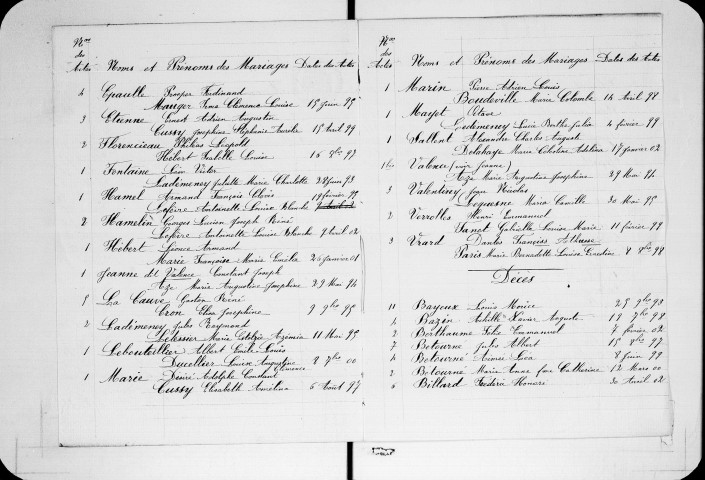 Nos des Actes
Noms et Prénoms des Mariages Dates des Actes
4 Epaulle Prosper Ferdinand
Mauger Irma Clémence Louise 15 Juin 95
3 Etienne Ernest Adrien Augustin
Cussy Joséphine Stéphanie Aurelie 15 Avril 99
2 Florencieau Léopold
Hébert Isabelle Louise 16 97
1 Fontaine Léon Victor
Lademeney Juliette Marie Charlotte 28 Juin 93
1 Hamel Armand François Clovis 19 février 95
Lefèvre Antoinette Louise Blanche
2 Hamelin Georges Lucien Joseph Réné
Lefèvre Antoinette Louise Blanche 9 Avril 02
1 Hébert Léonce Armand
Marie Françoise Marie Emélie 26 Janvier 01
1 Jeanne dit Valence Constant Joseph
Aze Marie Augustine Joséphine 29 Mai 94
5 La Cauve Gaston Réné
Cron Elisa Joséphine 9 9bre 95
2 Ladémeney Jules Raymond
Lelesser Marie Azémia 11 Mai 95
1 Leboutellier Albert Emile Louis
Ducellier Louise Augustine 8 7bre 00
Clémence
1 Marie Désiré Adolphe Constant
Cussy Elisabeth Amélina 6 Août 97
Nos des Actes
Noms et Prénoms des Mariages Dates des Actes
1 Marin Pierre Adrien Louis
Boudeville Marie Colombe 14 Avril 98
1 Mayet Octave
Lademeney Lucie Berthe Julia 4 février 99
1 Nallent Alexandre Charles Auguste
Delahaye Marie Célestine Adelina 17 Janvier 02
1 bis Valence (voir Jeanne)
Aze Marie Augustine Joséphine 29 Mai 94
3 Valentiney Jean Nicolas
Lequesne Maria Camille 30 Mai 95
2 Verrolles Henri Emmanuel
Sanet Gabrielle Louise Marie 11 février 99
3 Vrard Danlos François Alphonse
Paris Marie Bernadette Louise Ernestine 8 8bre 98
Décès
11 Bayeux Louis Moïse 25 9bre 98
4 Bazin Achille Xavier Auguste 19 7bre 98
2 Berthaume Félix Emmanuel 7 février 02
7 Betourné Jules Albert 15 8bre 97
4 Betourné Aimée Léa 8 Juin 99
2 Betourné Marie Anne fme Catherine 12 Mars 00
6 Billard Frédéric Honoré 30 Avril 02